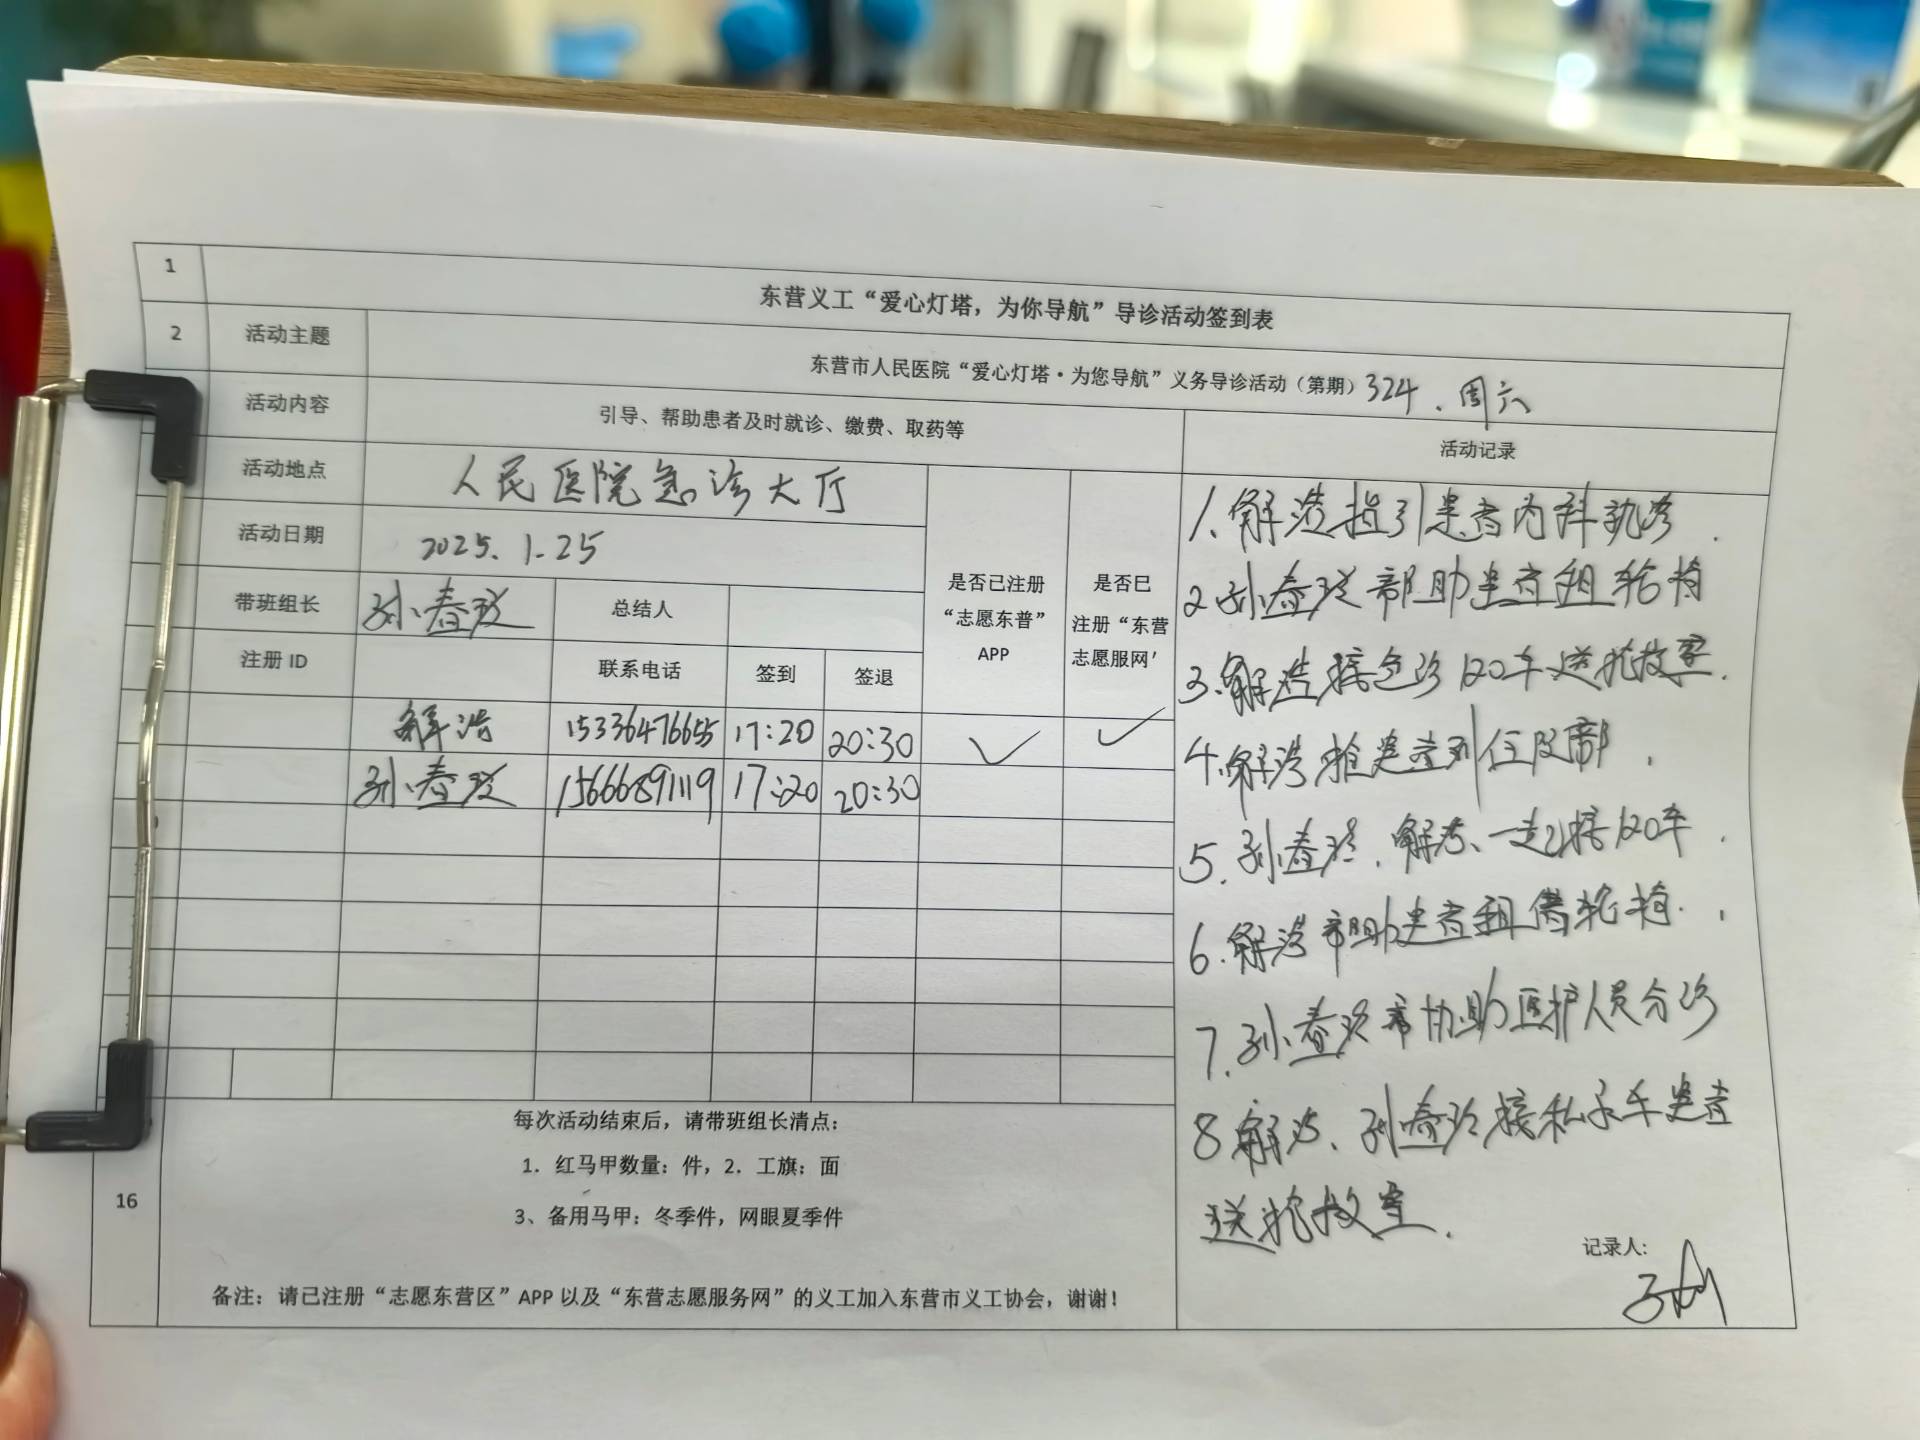 1
东营义工“爱心灯塔，为你导航”导诊活动签到表
2 活动主题 东营市人民医院“爱心灯塔·为您导航”义务导诊活动（第期）324、周六
活动内容 引导、帮助患者及时就诊、缴费、取药等 活动记录
活动地点 人民医院急诊大厅
活动日期 2025.1.25
带班组长 孙春玲 总结人
是否已注册“志愿东普”APP
是否巳注册“东营志愿服网’
注册 ID 联系电话 签到 签退
解浩 15336476655 17:20 20:30 ✓ ✓
孙春玲 15666891119 17:20 20:30
1.解浩指引患者内科就诊.
2.孙春玲帮助患者租轮椅
3.解浩接急诊120车送抢救室.
4.解浩推患者到住院部.
5.孙春玲、解浩、一起接120车.
6.解浩帮助患者租借轮椅.
7.孙春玲协助医护人员分诊
8解浩、孙春玲接私家车患者
送抢救室.
记录人:
16
每次活动结束后，请带班组长清点：
1. 红马甲数量：件，2. 工旗：面
3、备用马甲：冬季件，网眼夏季件
备注：请已注册“志愿东营区”APP 以及“东营志愿服务网”的义工加入东营市义工协会，谢谢！